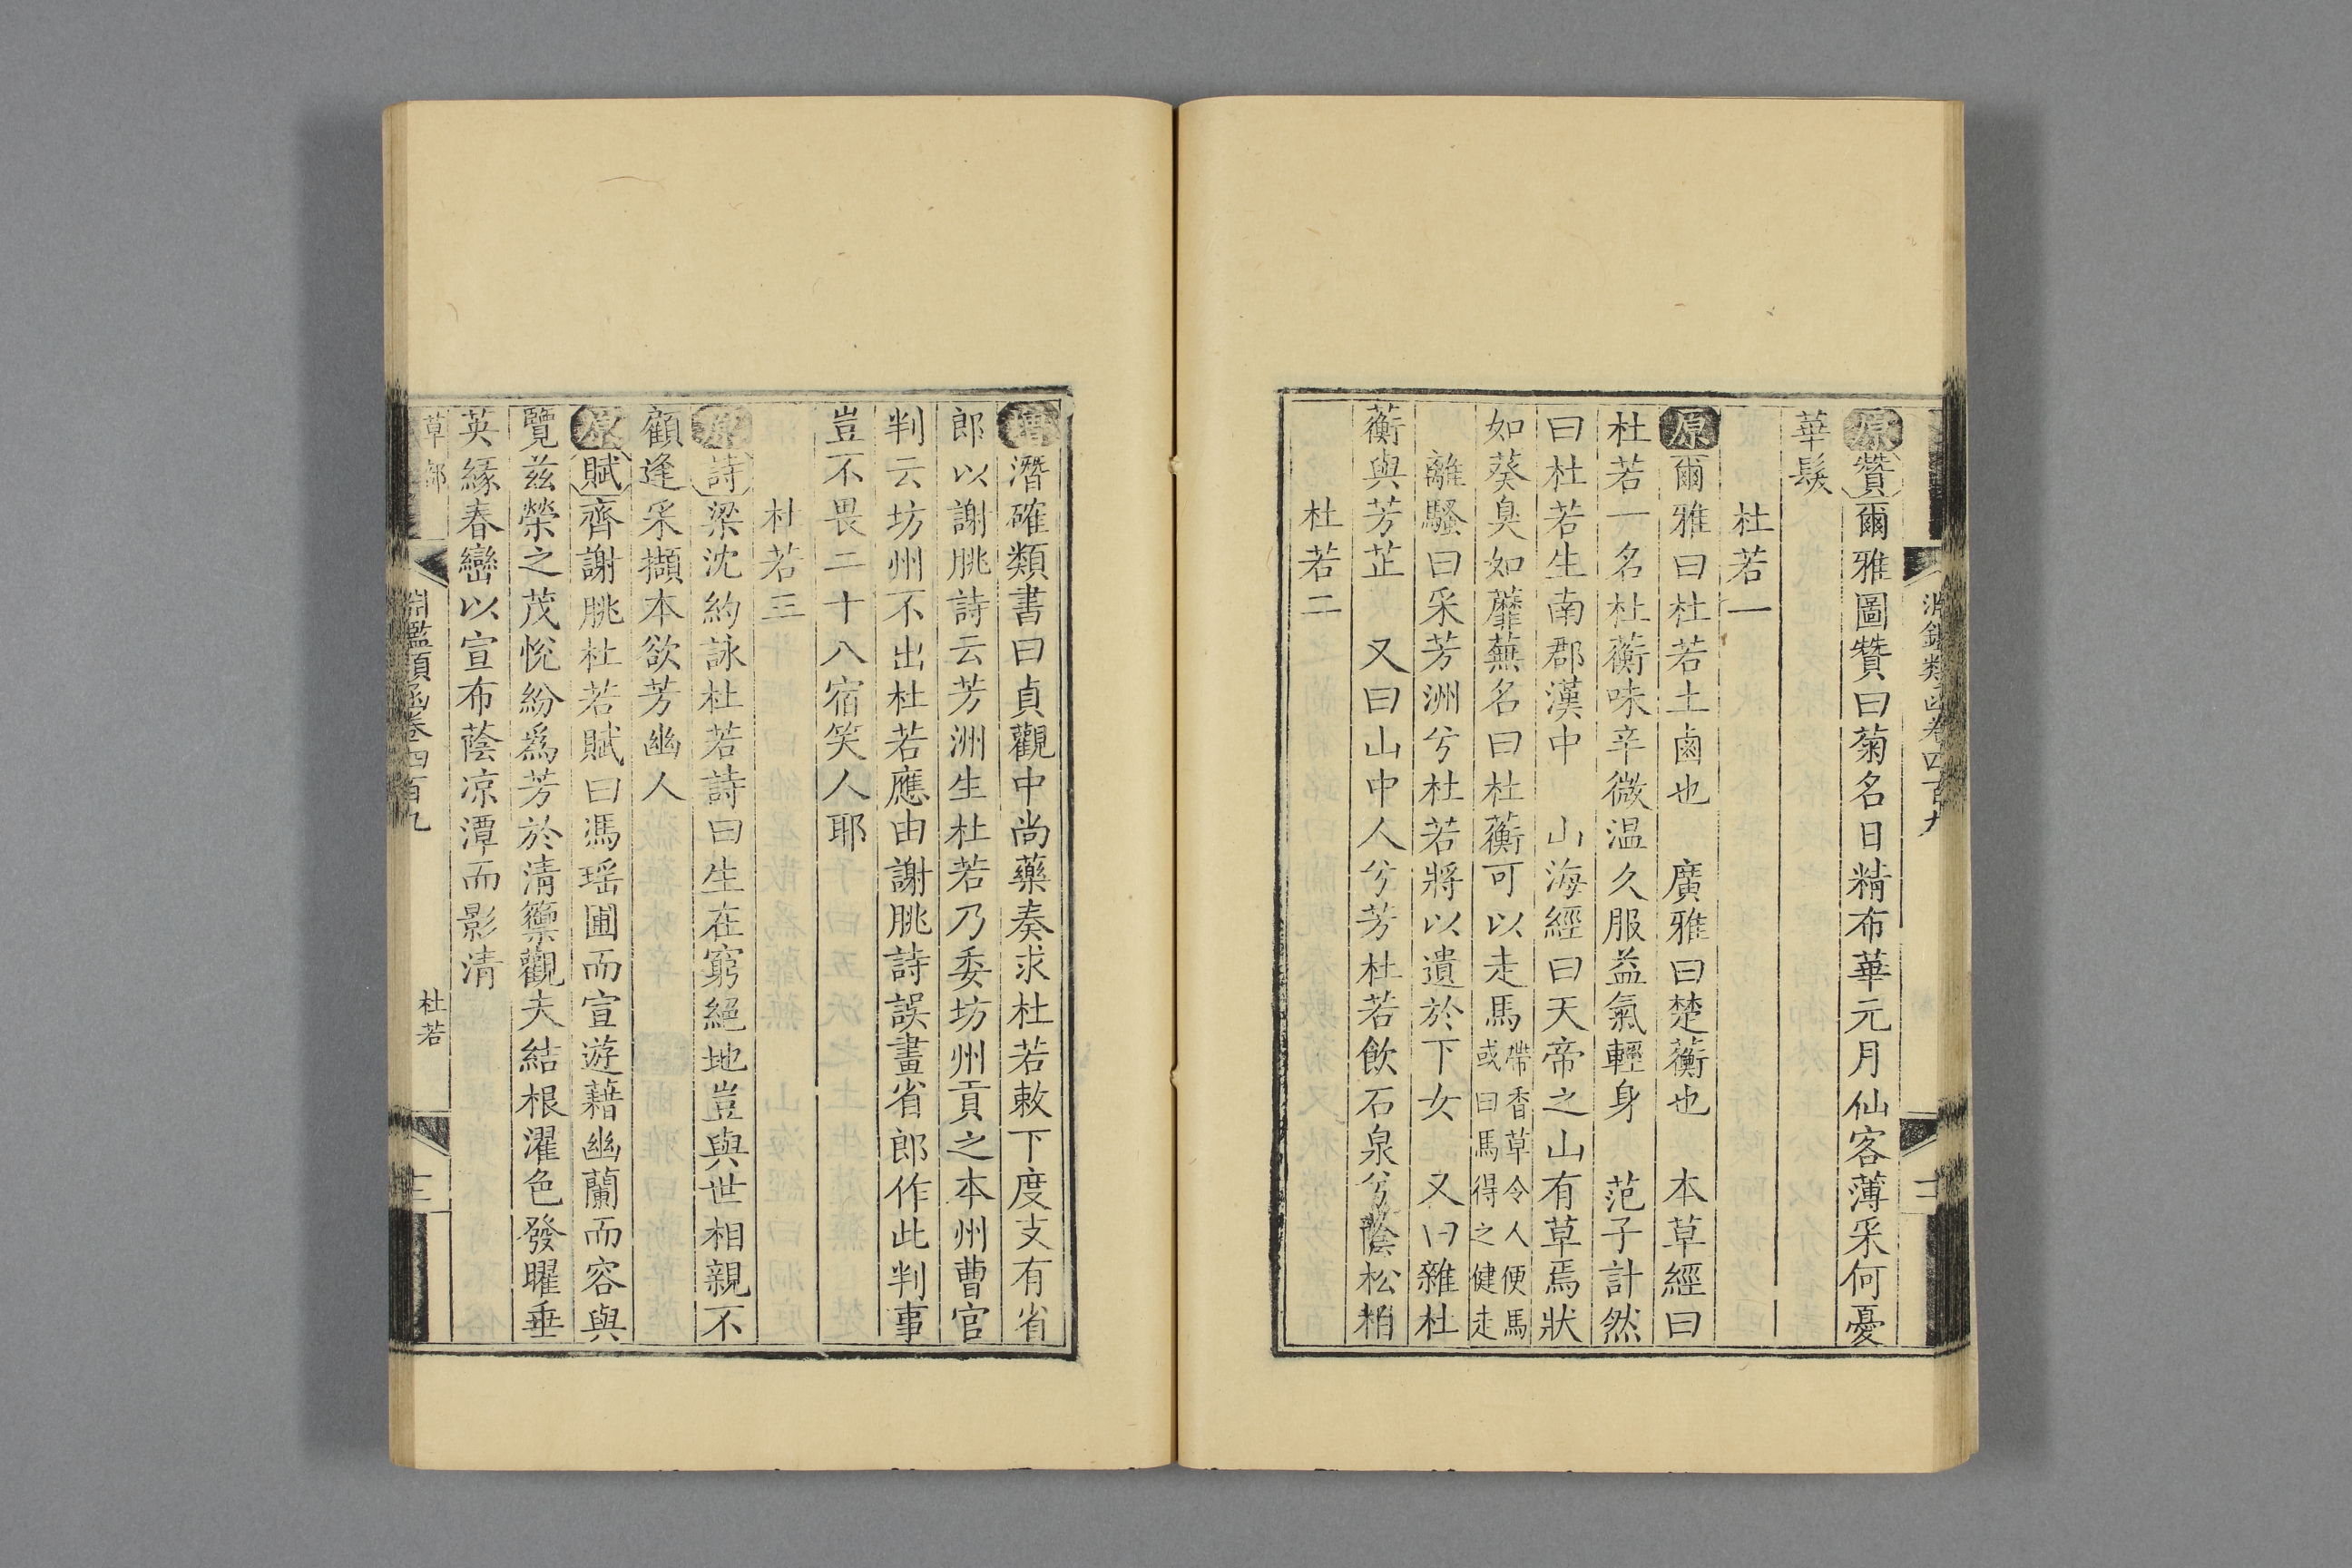 淵鑑類函卷四百九
原贊爾雅圖贊曰菊名日精布華元月仙客薄采何憂
華髮
杜若一
原爾雅曰杜若土鹵也　廣雅曰楚蘅也　本草經曰
杜若一名杜蘅味辛微温久服益氣輕身　范子計然
曰杜若生南郡漢中　山海經曰天帝之山有草焉狀
如葵臭如蘼蕪名曰杜蘅可以走馬帶香草令人便馬或曰馬得之健走
離騷曰采芳洲兮杜若將以遺於下女　又曰雜杜
蘅與芳芷　又曰山中人兮芳杜若飲石泉兮蔭松柏
杜若二
增潛確類書曰貞觀中尚藥奏求杜若敕下度支有省
郎以謝朓詩云芳洲生杜若乃委坊州貢之本州曹官
判云坊州不出杜若應由謝朓詩誤畫省郎作此判事
豈不畏二十八宿笑人耶
杜若三
原詩梁沈約詠杜若詩曰生在窮絕地豈與世相親不
顧逢采擷本欲芳幽人
原賦齊謝朓杜若賦曰馮瑶圃而宣遊藉幽蘭而容與
覽兹榮之茂悅紛為芳於清籞觀夫結根濯色發曜垂
英緣春巒以宣布蔭凉潭而影清
草部
淵鑑類函卷四百九
杜若